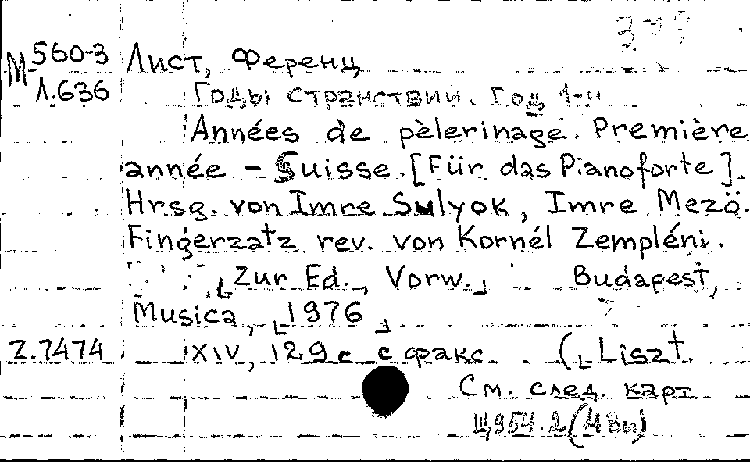 М 560-3 Лист, Ференц
Л.636 Годы странствий. Год 1-й
Années de pèlerinage. Première
année – Suisse. [Für das Pianoforte].
Hrsg. von Imre Sulyok, Imre Mezö.
Fingerzatz rev. von Kornél Zempléni.
[Zur Ed., Vorw.] Budapest,
Musica, [1976]
Z.7474 XIV, 129 с. с факс. ([Liszt
См. след. карт
Щ954.2(4Вн)